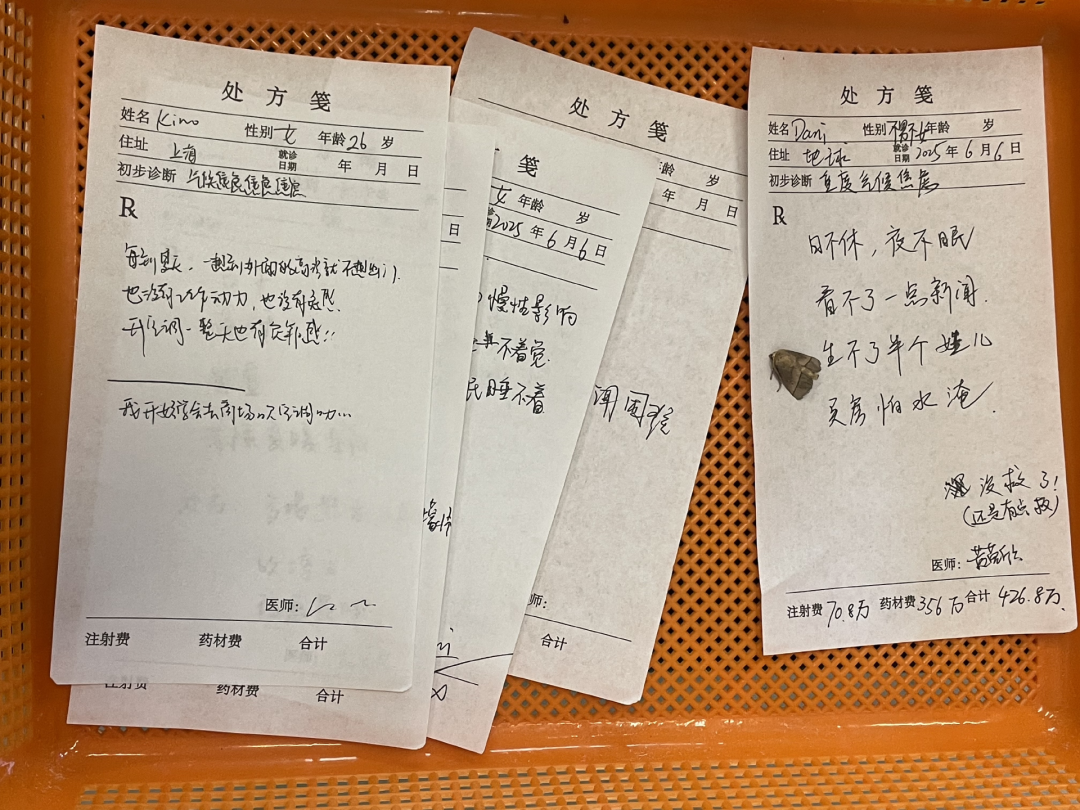 处方笺
姓名 Kimo 性别 女 年龄 26 岁
住址 上海 就诊日期 年 月 日
初步诊断 气候焦虑焦虑焦虑
℞
每到夏天,一想到外面的高温就不想出门
也没有工作动力,也没有灵感
开空调一整天也有负罪感!!
我开始学会去商场吹空调
医师:
注射费 药材费 合计
日
注射费 药材费 合计
笺
女 年龄 岁
2025 年 6 月 6 日
慢性影响
不着觉
民睡不着
处方笺
年龄 岁
年 月 日
闻
合计
处方笺
姓名 Dani 性别 年龄 岁
住址 地球 就诊日期 2025 年 6 月 6 日
初步诊断 重度气候焦虑
℞
日不休,夜不眠
看不了一点新闻.
生不了半个娃儿
买房怕水淹.
没救了!
(还是有点救)
医师:
注射费 70.8万 药材费 356万 合计 426.8万.